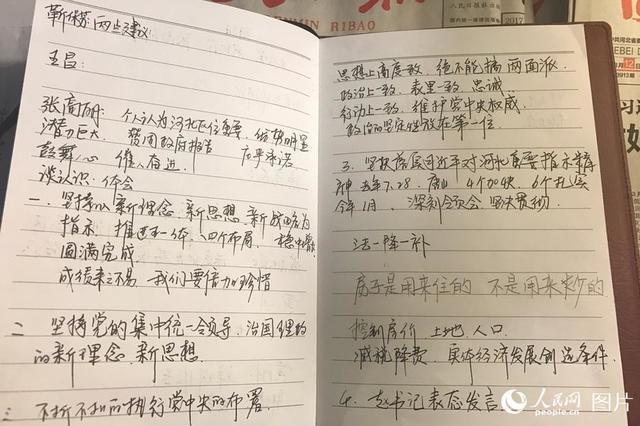 人民日报社出版
国内统一连续出版
2017
RIBAO
靳绥东:两点建议
王昌:
张高丽: 个人认为河北地位重要, 优势明显
潜力巨大 赞同政府报告 庄严承诺
鼓舞人心 催人奋进
谈认识、体会
一、坚持以新理念 新思想 新战略为
指示 推进五一体、四个布局, 稳中
圆满完成
成绩来之不易 我们要倍加珍惜
二 坚持党的集中统一领导, 治国理政
的新理念、新思想
三 不折不扣的执行党中央的布署.
思想上高度一致, 绝不能搞两面派
政治上一致, 表里一致, 忠诚
行动上一致, 维护党中央权威
政治的坚定性放在第一位
3. 坚持落实习近平对河北重要指示精
神 去年7.28, 唐山 4个加快, 6个扎实
今年1月 深刻领会 坚决贯彻
去一降一补
房子是用来住的 不是用来炒的
控制房价 土地、人口
减税降费, 实体经济发展创造条件
4. 赵书记表态发言
人民网 图片
people.cn